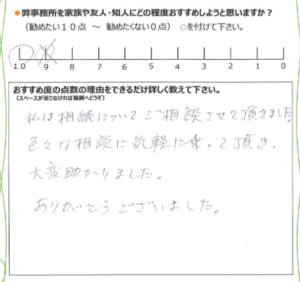 ●弊事務所を家族や友人・知人にどの程度おすすめしようと思いますか？
（勧めたい１０点 ～ 勧めたくない０点） ○を付けて下さい。
10 9 8 7 6 5 4 3 2 1 0
おすすめ度の点数の理由をできるだけ詳しく教えて下さい。
（スペースが足りなければ裏面へどうぞ）
私は相続についてご相談させて頂きました
色々な相談に気軽に乗って頂き、
大変助かりました。
ありがとうございました。